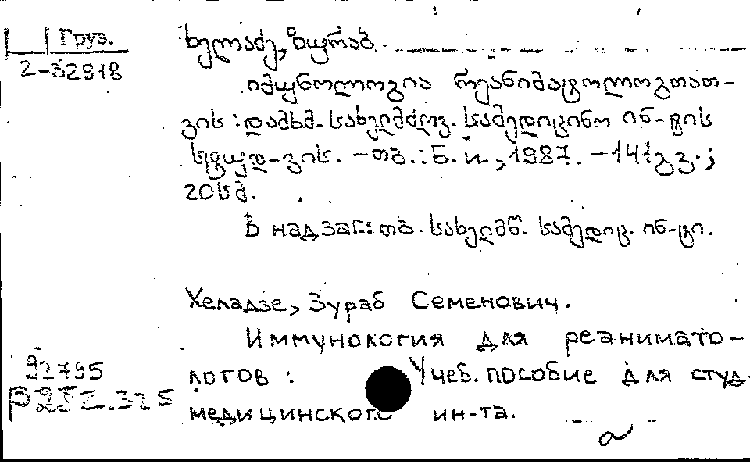 Груз.
2-32918
ხელაძე, ზურაბ.
იმუნოლოგია რეანიმატოლოგთათ-
ვის : დამხმ. სახელმძღვ. სამედიცინო ინ-ტის
სტუდ-ვის. - თბ. : Б. и., 1987. - 141 გვ. ;
20 სმ.
В надзаг: თბ. სახელმწ. სამედიც. ინ-ტი.
Хеладзе, Зураб Семенович.
Иммунология для реанимато-
логов : Учеб. пособие для студ.
медицинского ин-та.
92795